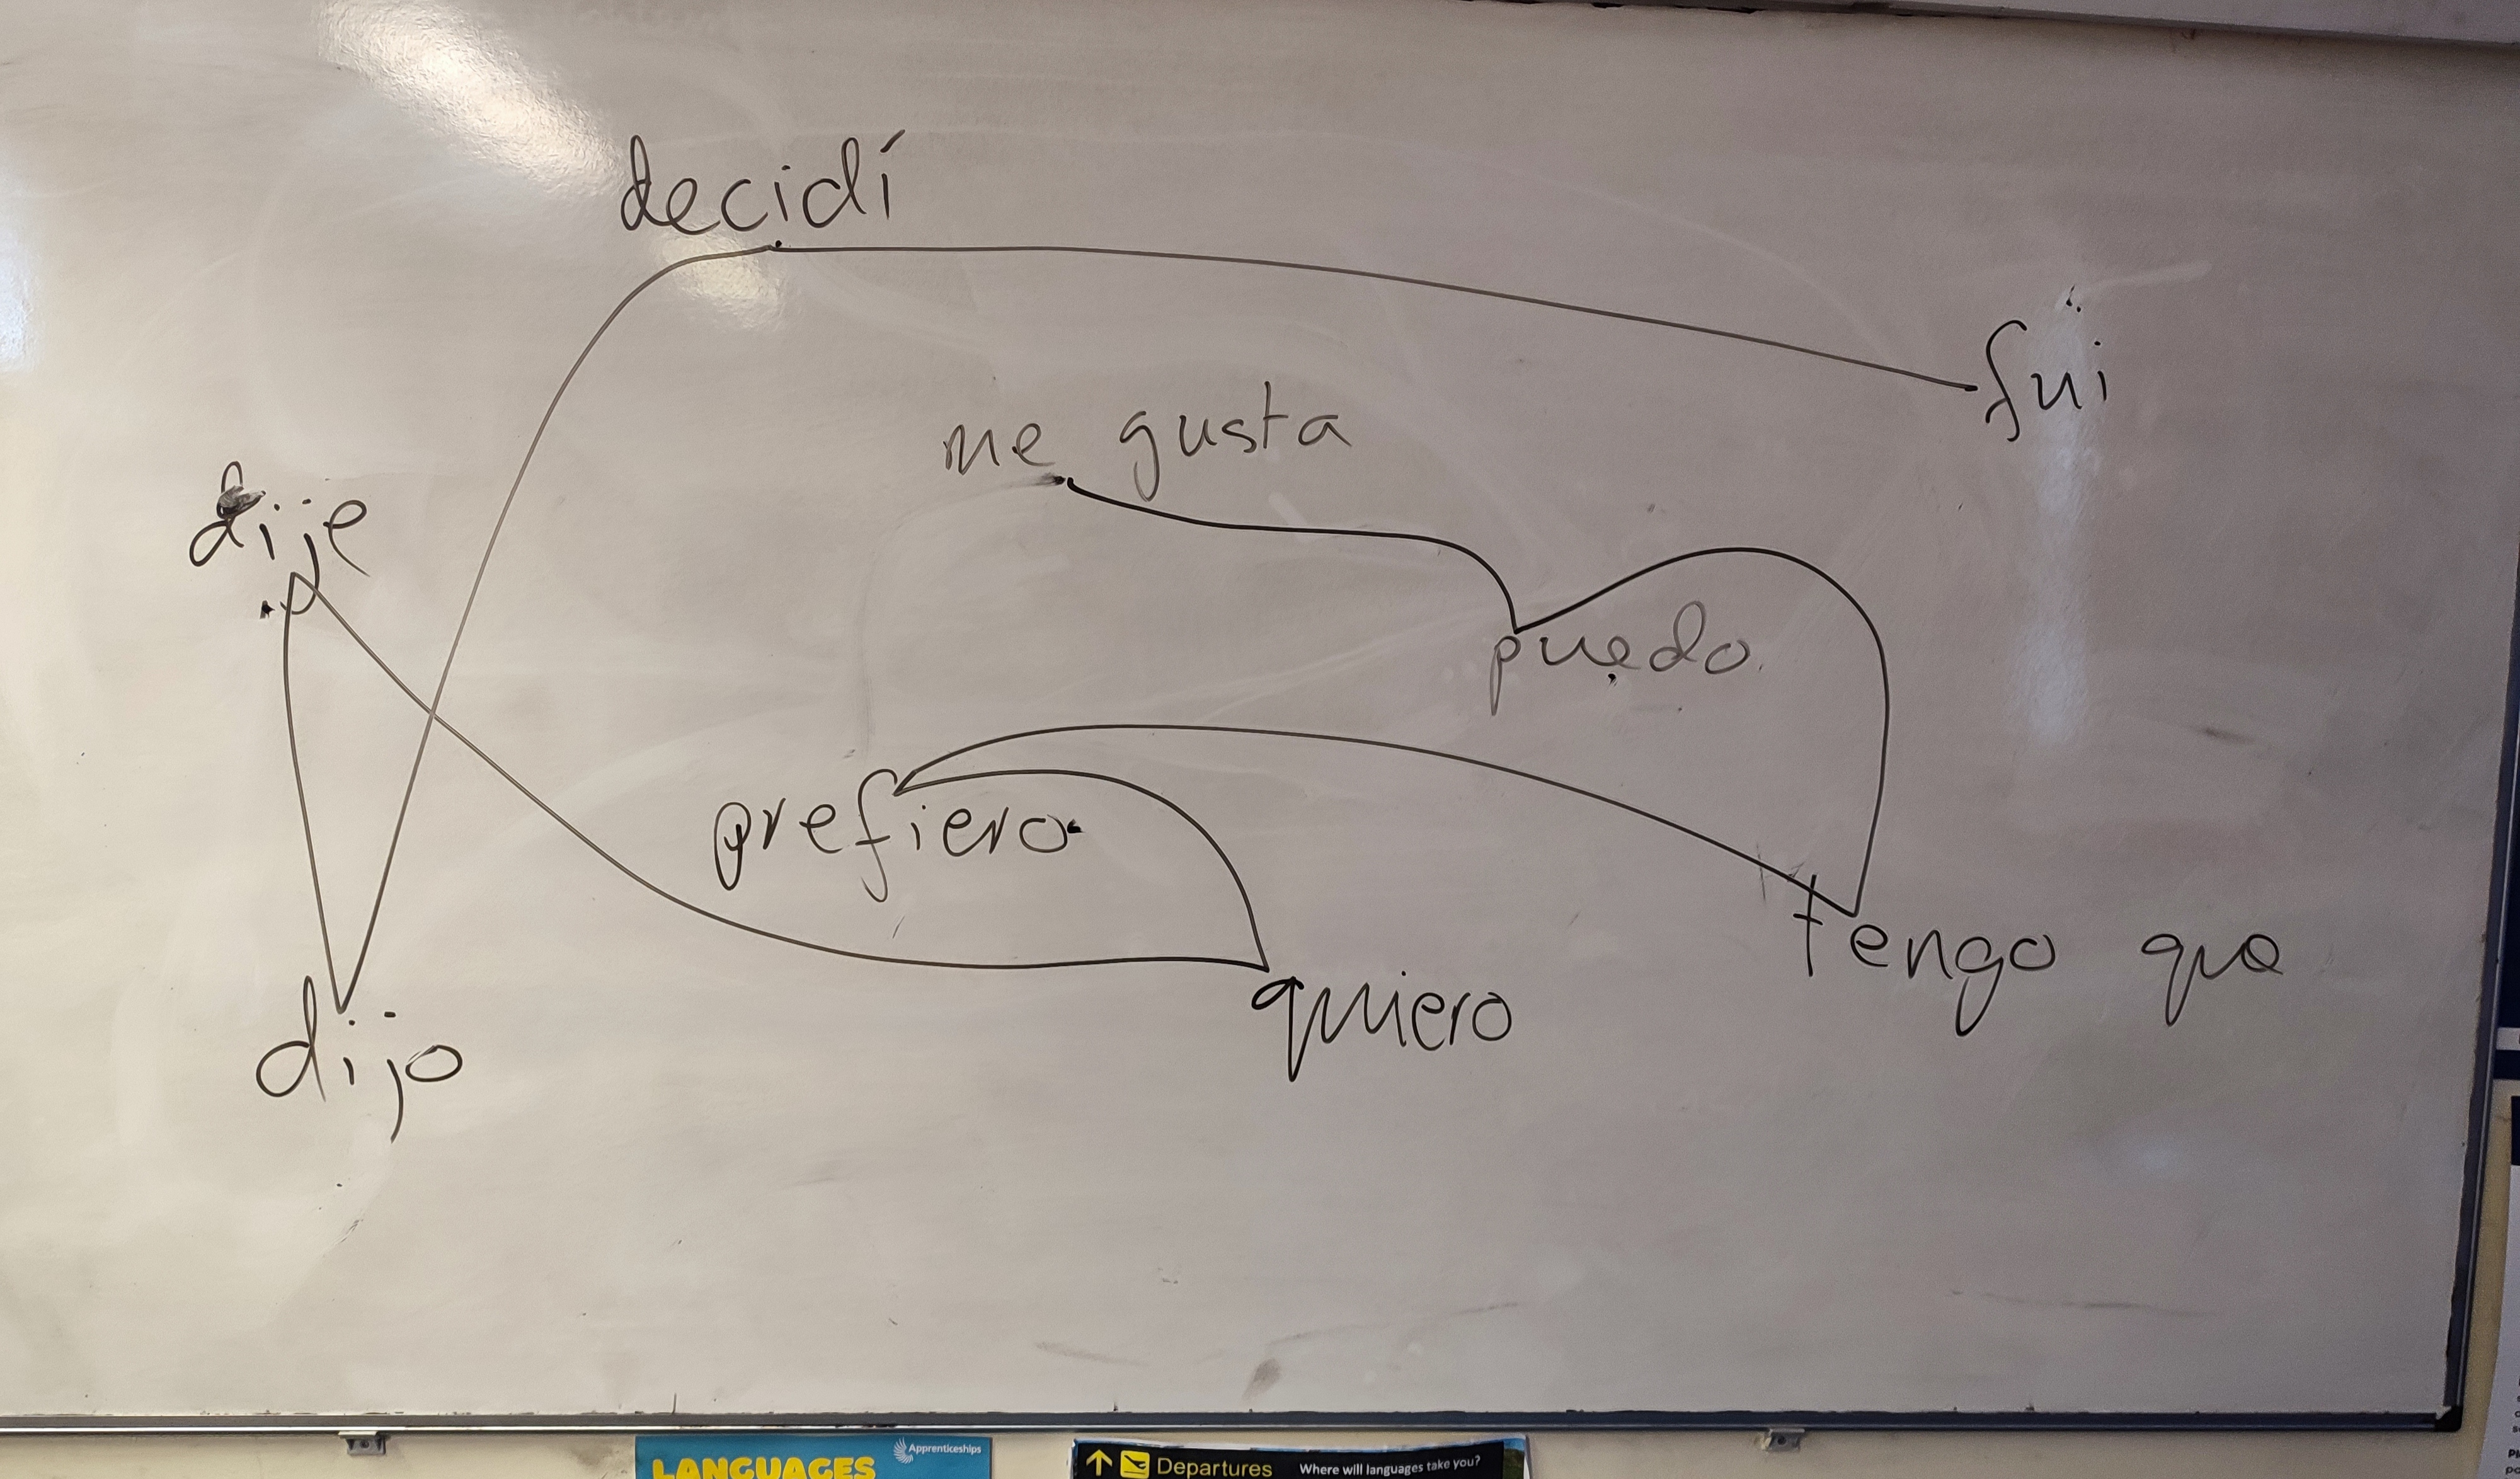 decidí
fui
me gusta
dije
puedo
prefiero
tengo que
quiero
dijo
Apprenticeships
LANGUAGES
Departures Where will languages take you?